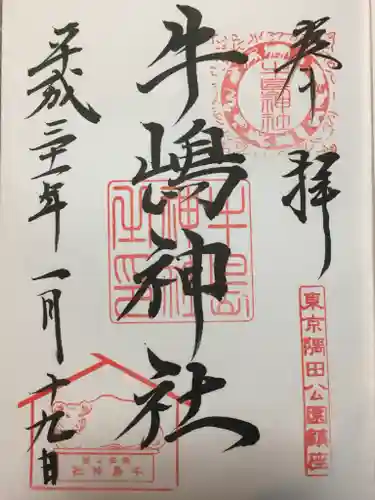 奉拝
牛嶋神社
平成三十一年一月十九日
東京隅田公園鎮座
牛嶋神社